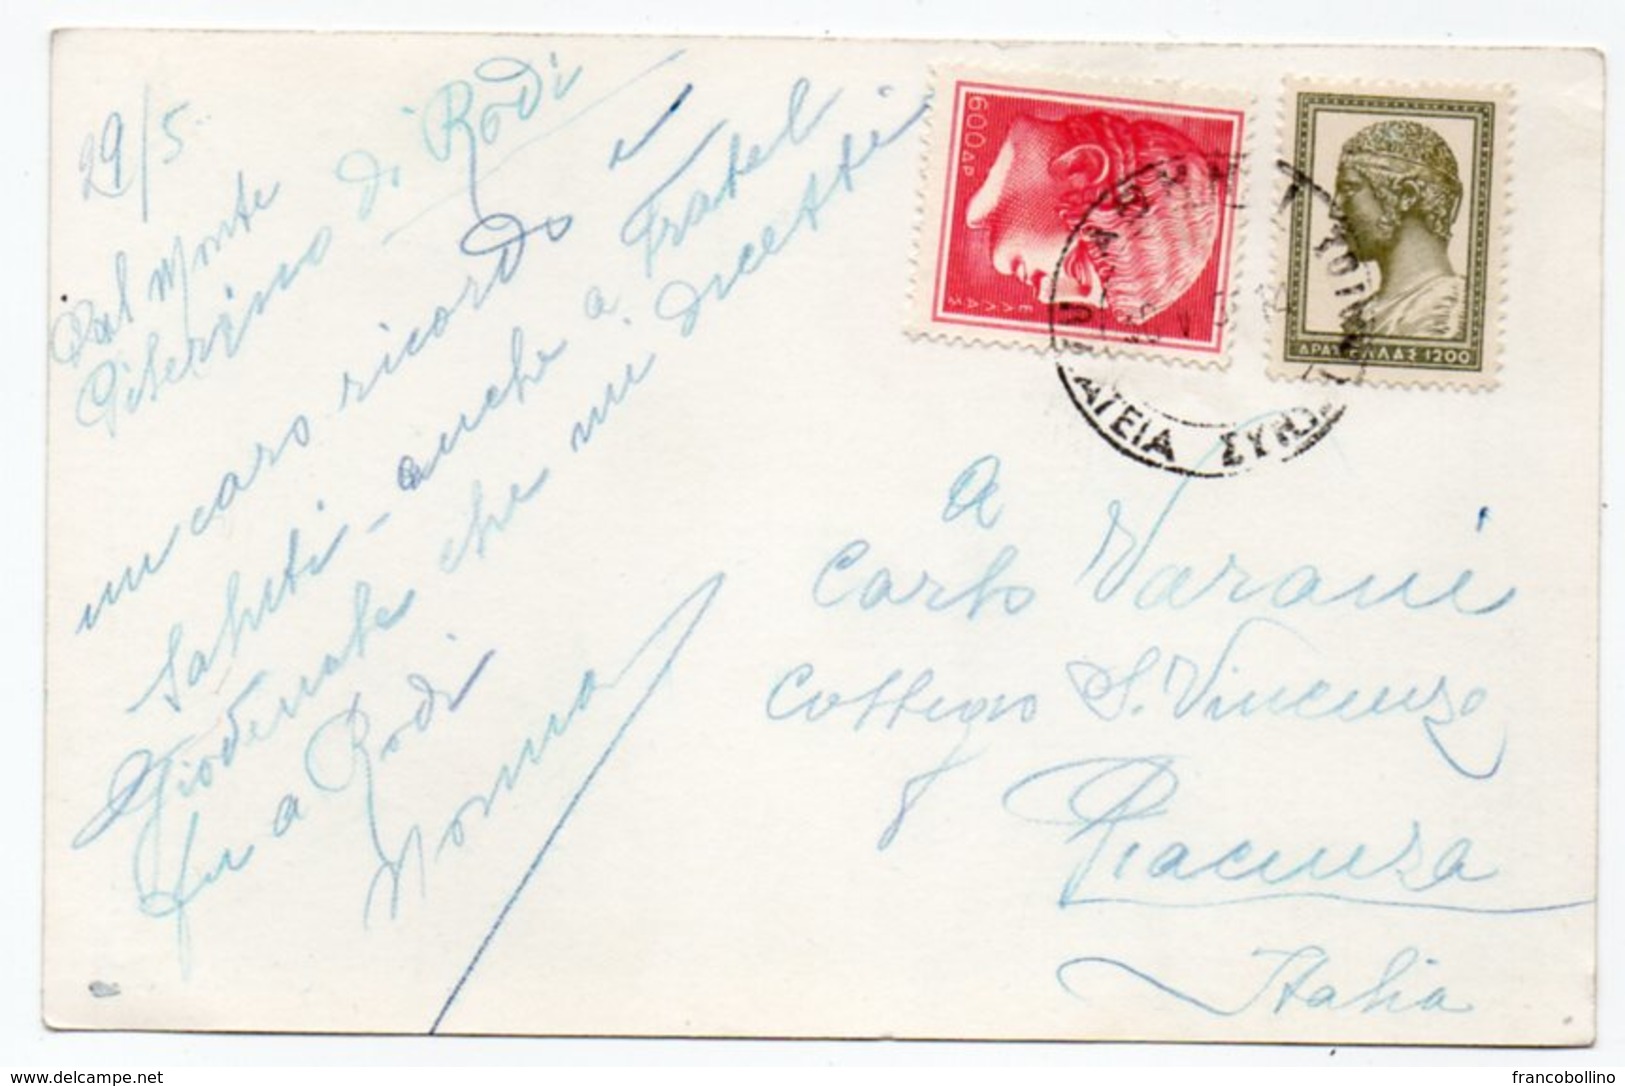 29/5.
Dal Monte
di Rodi
un caro ricordo e
saluti - anche a Fratel
Diodenate che mi dicetti
fu a Rodi
Norma
600 ΔΡ
ΕΛΛΑΣ
ΔΡΑΧ ΕΛΛΑΣ 1200
a
Carlo Varani
Collegio S. Vincenzo
Piacenza
Italia
www.delcampe.net
francobollino